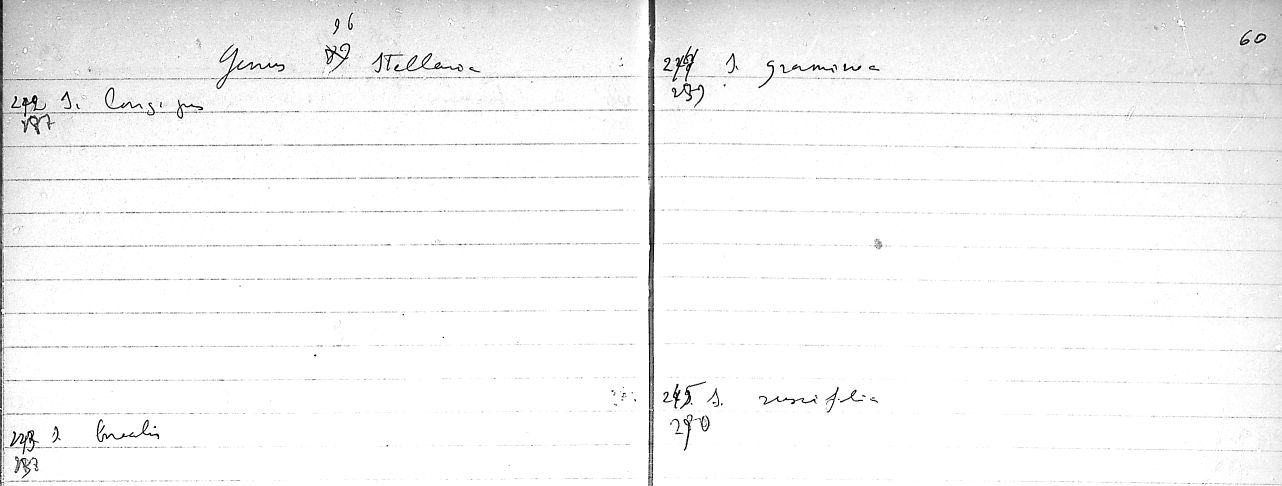 96
Genus 89 Stellaria
272 S. longipes
287
273 S. borealis
60
S. graminea
289
275 S. ruscifolia
290